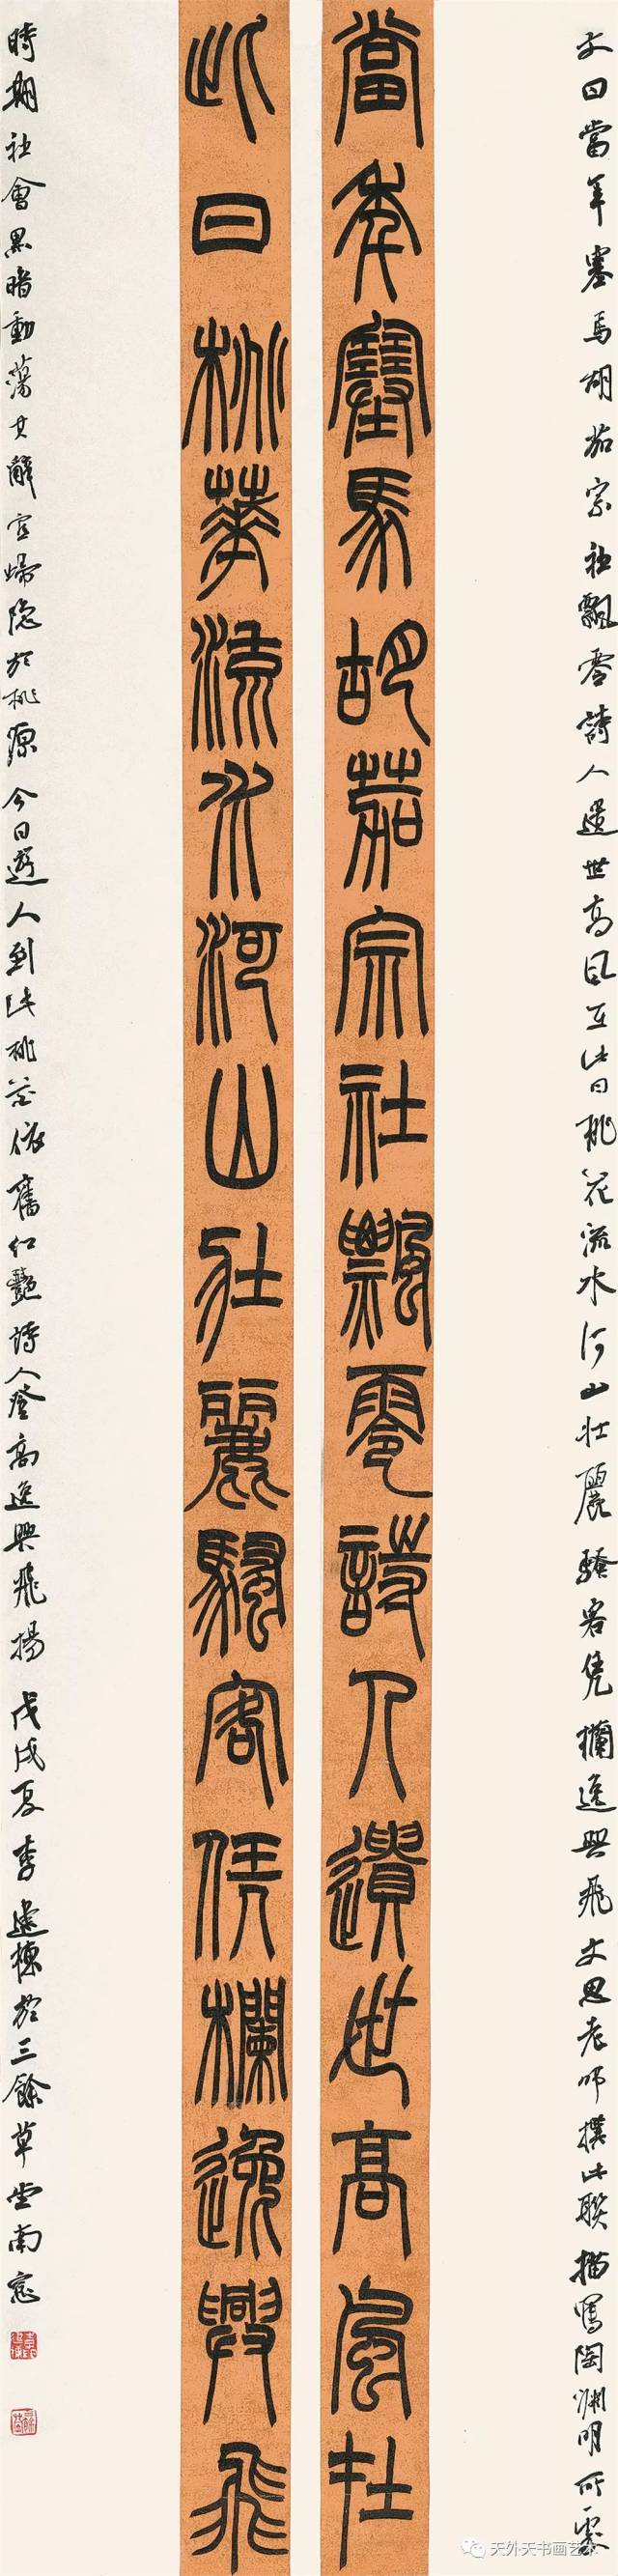 文曰當年塞馬胡茄宗社飄零詩人遺世高風在此日桃花流水河山壯麗騷客凭欄逸興飛文思老師撰此聯描寫陶淵明所處
當年塞馬胡茄宗社飄零詩人遺世高風在
此日桃華流水河山壯麗騷客凭欄逸興飛
時期社會黑暗動蕩其辭官歸隱於桃源今日遊人到此桃花依舊紅艷詩人登高逸興飛揚戊戌夏李建德於三餘草堂南窗
天外天书画艺术